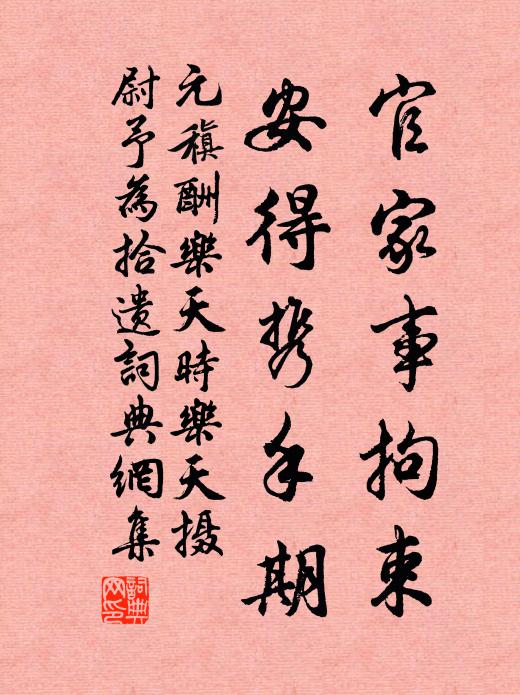 官家事拘束
安得携手期
元稹酬樂天時樂天摄
尉予為拾遺詞典網集
詞典网印